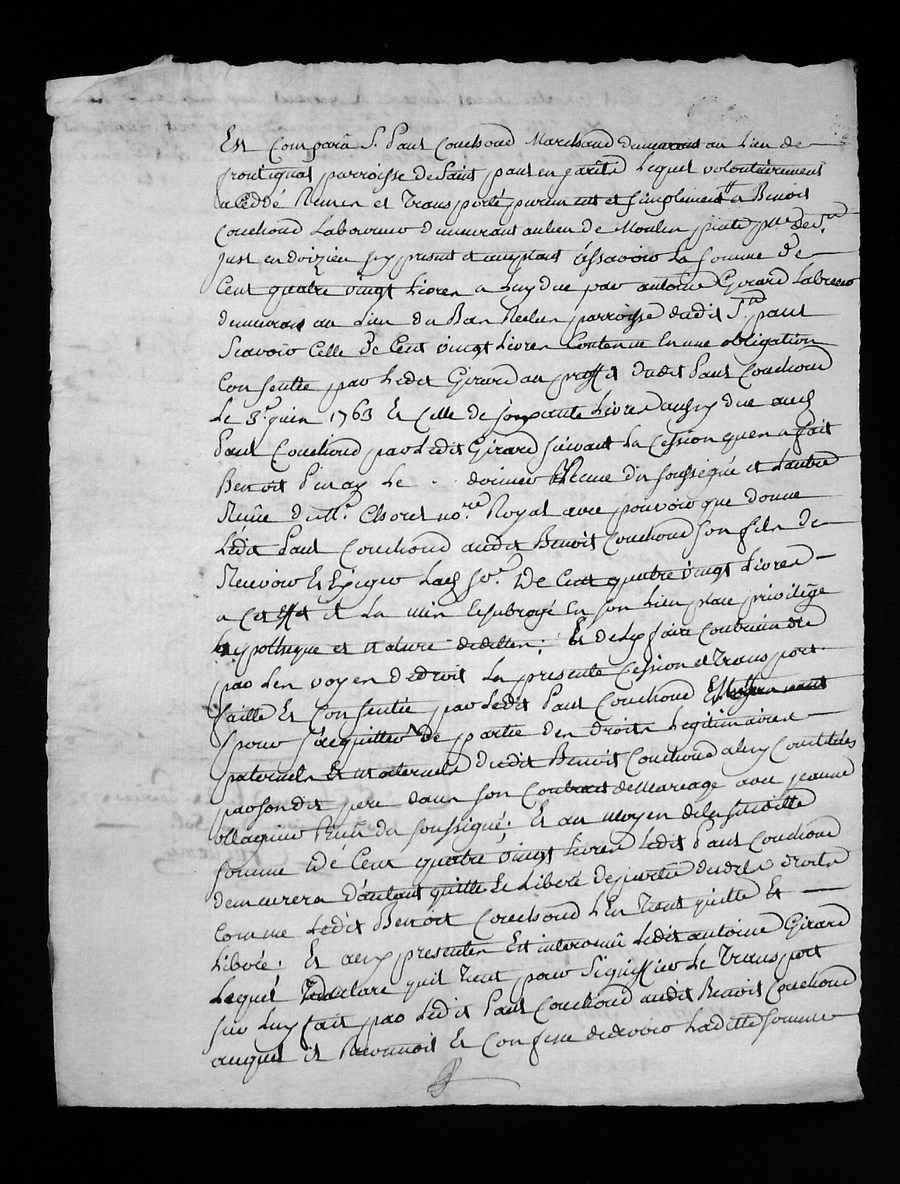 Est Comparu Sr. Paul Couchoud Marchand demeurant au Lieu de
parroisse de Saint paul en jarets Lequel volontairement
a Ceddé Remis et Transporté purement et simplement a Benoit
Couchoud Laboureur demeurant au lieu de Moulin psse de St.
just en doizieu cy present et acceptant assavoir La somme De
Cent quatre vingt Livres a Luy due par antoine Girard Laboureur
demeurant au Lieu du Ban parroisse dudit St. paul
Scavoir Celle De Cent vingt Livres Contenue en une obligation
Consentie par Ledit Girard au proffit dudit Paul Couchoud
Le 3e. juin 1763 Et Celle de soixante Livres aussy due aud.
Paul Couchoud par Ledit Girard suivant La Cession quen a fait
Benoit Pinay Le . . dernier Receue du soussigné et L'autre
Reçüe de Me. no.re Royal avec pouvoir que donne
Ledit Paul Couchoud audit Benoit Couchoud son fils de
Recevoir et Exiger Lad. so.e De Cent quatre vingt Livres
a Cet effet il La mis et subrogé En son Lieu place privilege
hypotheque et nature dicelles ; Et de
par Les voyes de droit La presente Cession et transport
faitte et Consentie par Ledit Paul Couchoud
pour s'acquitter De partie des droits Legitimaires
paternels et maternels dudit Benoit Couchoud a luy Constitués
par sondit pere dans son Contrat de Mariage avec jeanne
Reçu du soussigné ; Et au moyen de la susditte
somme De Cent quatre vingt Livres Ledit Paul Couchoud
demeurera d'autant quitte et Liberé de partie desdits droits
Comme Ledit Benoit Couchoud L'en tient quitte Et
Liberé ; Et aux presentes Est intervenû Ledit antoine Girard
Lequel declare quil tient pour signiffiée Le Transport
sur Luy fait par Ledit Paul Couchoud audit Benoit Couchoud
auquel il Reconnoit Et Confesse devoir Laditte somme